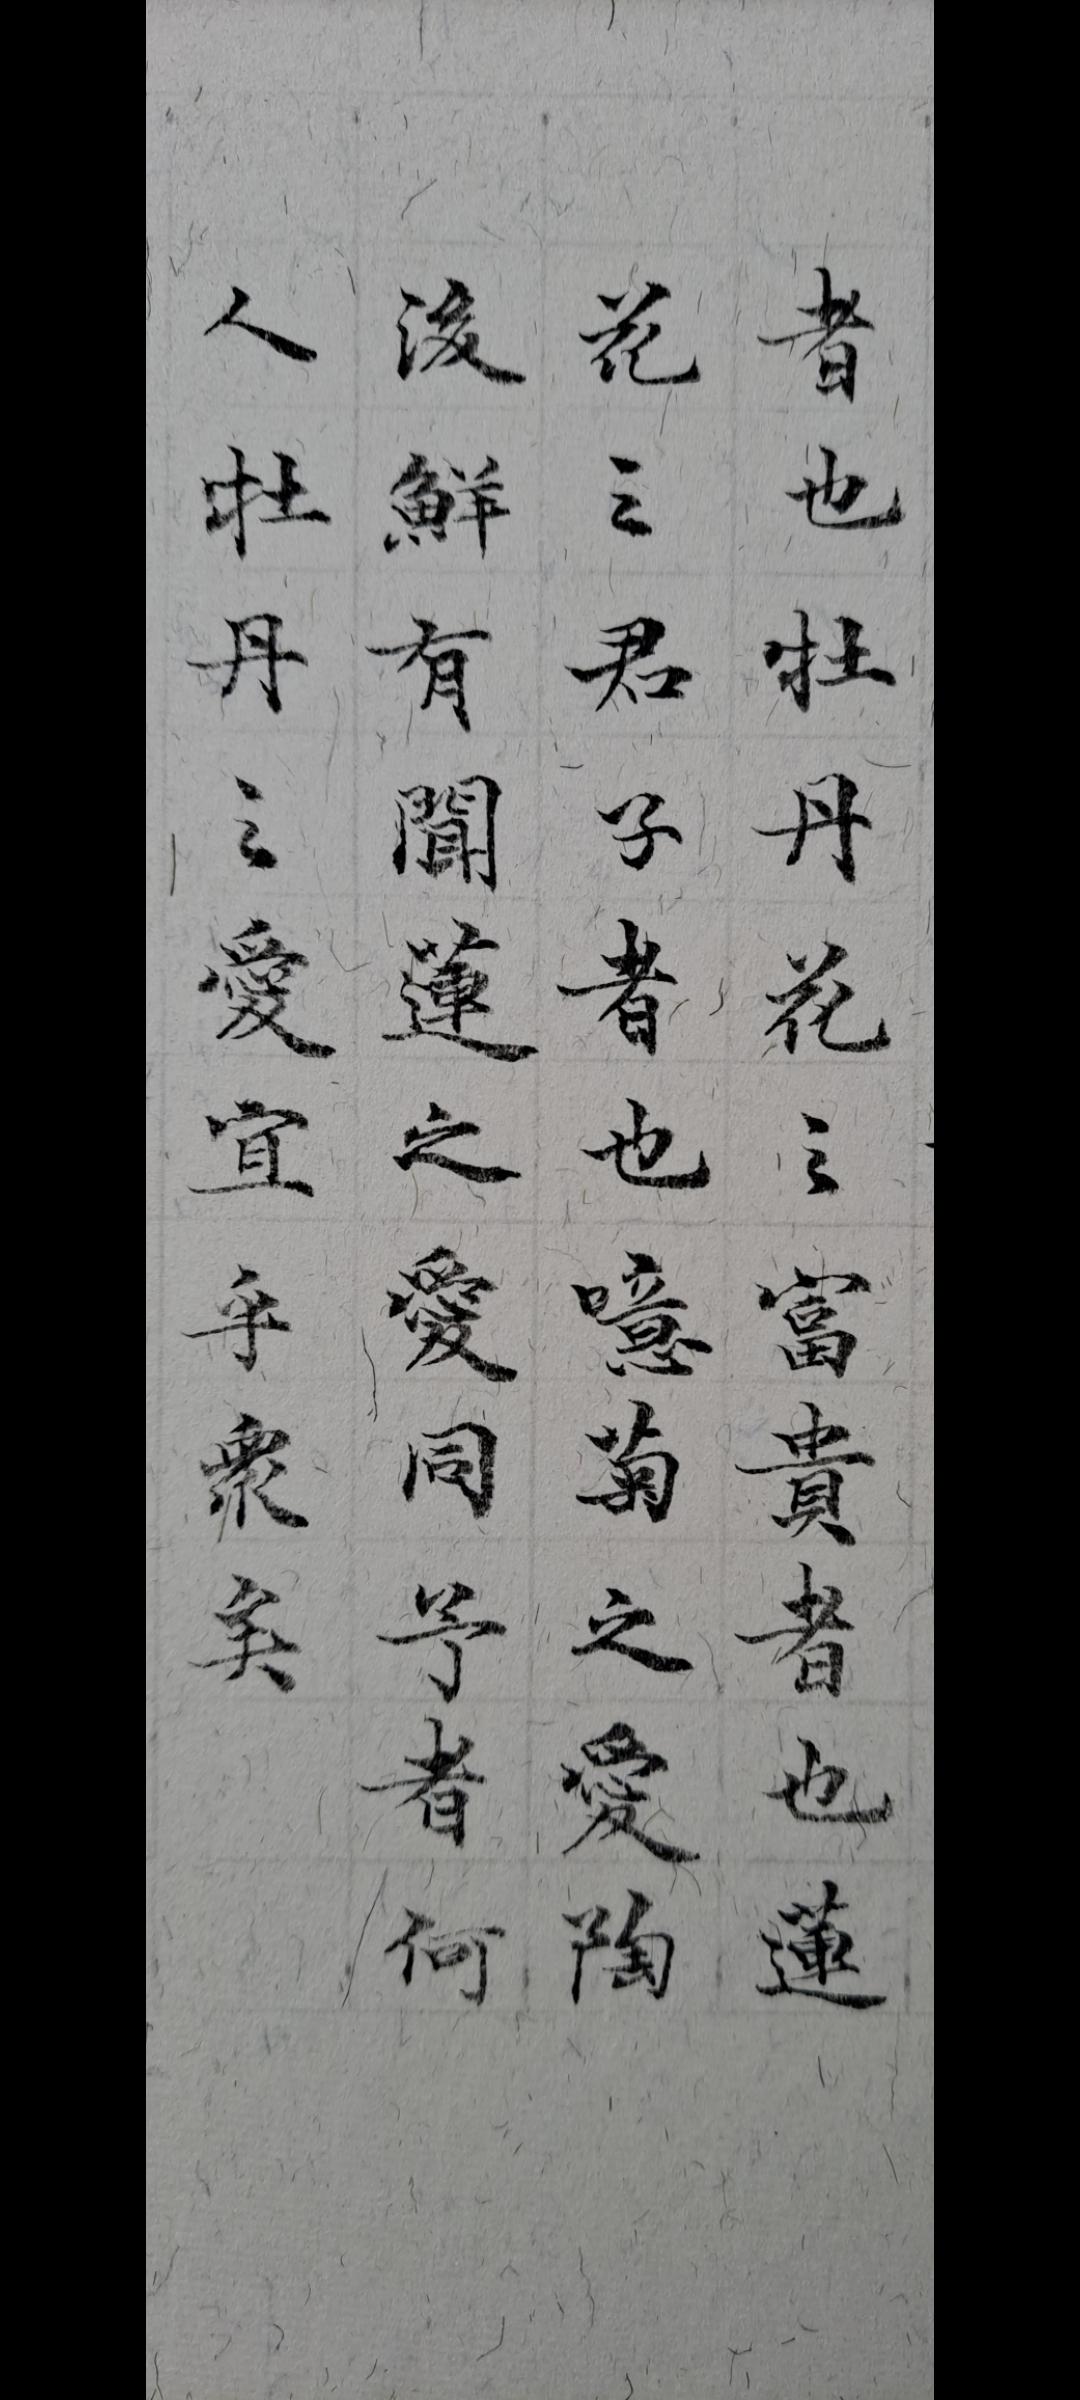 者也牡丹花之富貴者也蓮
花之君子者也噫菊之愛陶
後鮮有聞蓮之愛同予者何
人牡丹之愛宜乎衆矣